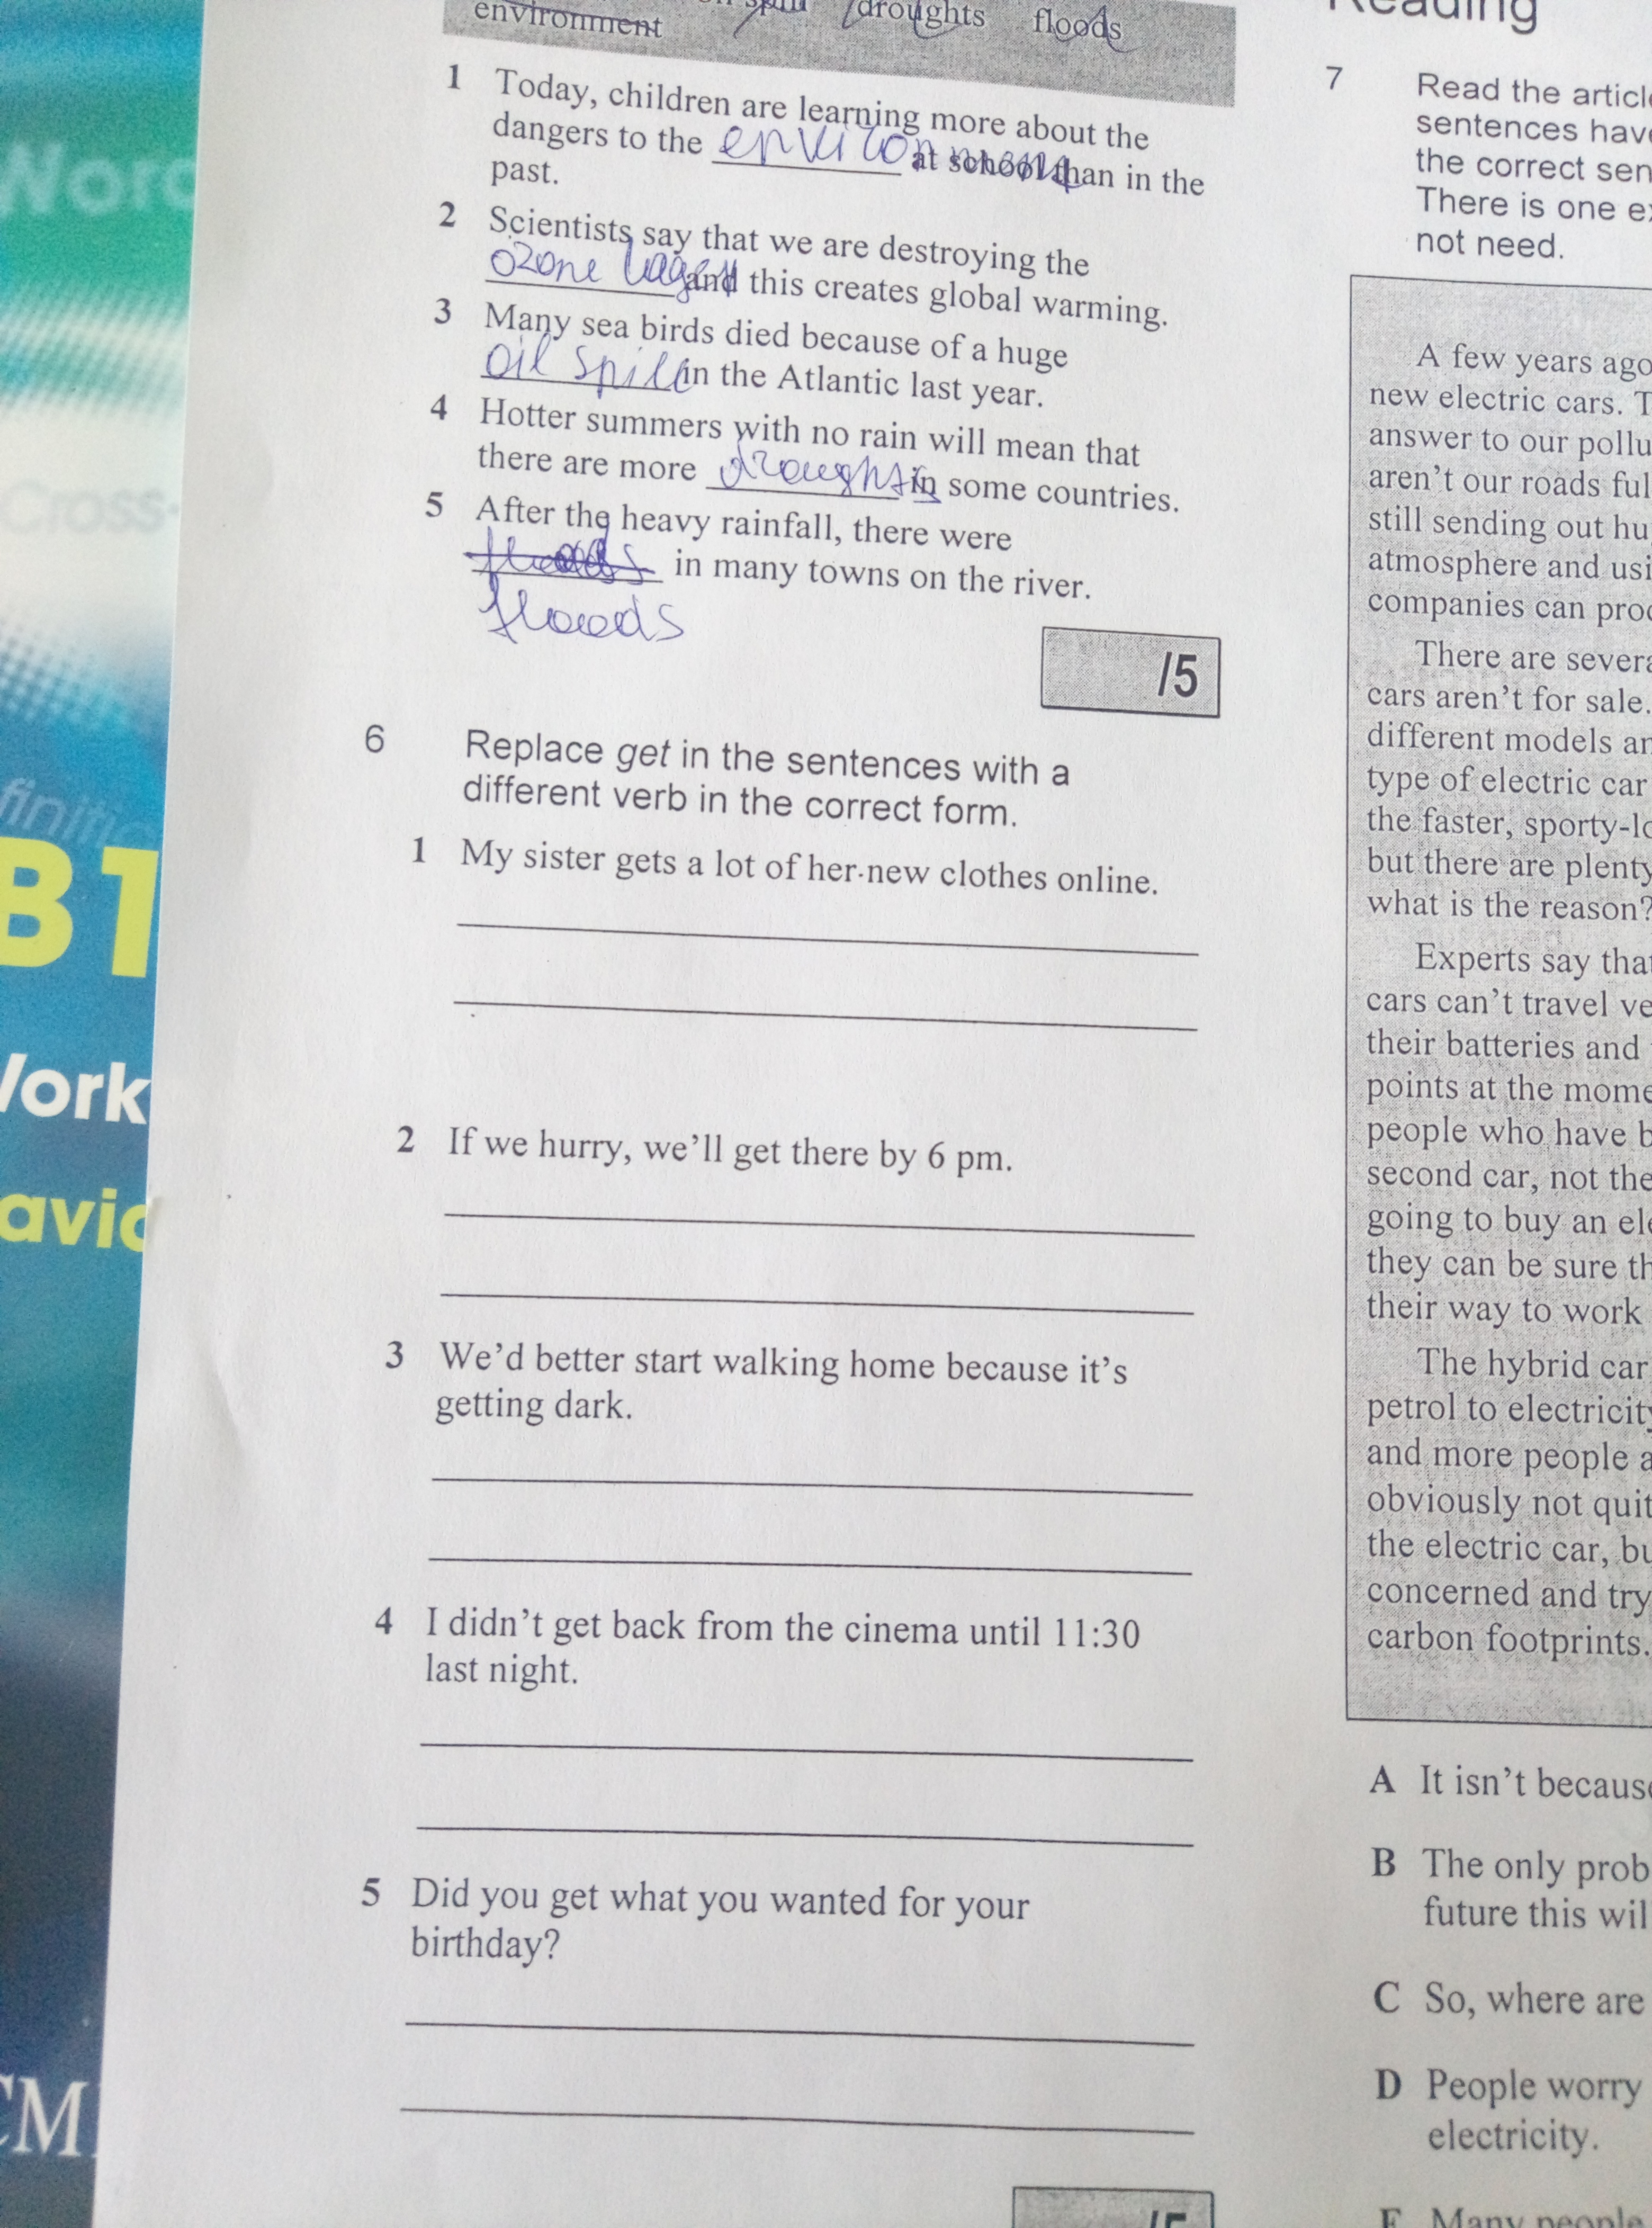 Word
Cross-
finitio
B1
Work
avid
CM
environment
spill droughts floods
1 Today, children are learning more about the
dangers to the environment at school than in the
past.
2 Scientists say that we are destroying the
ozone layer and this creates global warming.
3 Many sea birds died because of a huge
oil spill in the Atlantic last year.
4 Hotter summers with no rain will mean that
there are more droughts in some countries.
5 After the heavy rainfall, there were
floods in many towns on the river.
floods
/5
6 Replace get in the sentences with a
different verb in the correct form.
1 My sister gets a lot of her new clothes online.
2 If we hurry, we'll get there by 6 pm.
3 We'd better start walking home because it's
getting dark.
4 I didn't get back from the cinema until 11:30
last night.
5 Did you get what you wanted for your
birthday?
/5
Reading
7 Read the article
sentences have
the correct sen
There is one ex
not need.
A few years ago
new electric cars. T
answer to our pollu
aren't our roads ful
still sending out hu
atmosphere and usi
companies can proc
There are severa
cars aren't for sale.
different models an
type of electric car
the faster, sporty-lo
but there are plenty
what is the reason?
Experts say that
cars can't travel ve
their batteries and
points at the mome
people who have b
second car, not the
going to buy an ele
they can be sure th
their way to work
The hybrid car
petrol to electricity
and more people a
obviously not quit
the electric car, bu
concerned and try
carbon footprints.
A It isn't because
B The only prob
future this wil
C So, where are
D People worry
electricity.
E Many people